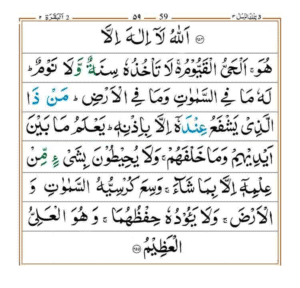 ۵۹ 59
اَللّٰهُ لَاۤ اِلٰهَ اِلَّا
هُوَ ۚ اَلۡحَـىُّ الۡقَيُّوۡمُ ۚ لَا تَاۡخُذُهٗ سِنَةٌ وَّلَا نَوۡمٌ ؕ
لَهٗ مَا فِى السَّمٰوٰتِ وَمَا فِى الۡاَرۡضِ ؕ مَنۡ ذَا
الَّذِىۡ يَشۡفَعُ عِنۡدَهٗۤ اِلَّا بِاِذۡنِهٖ ؕ يَعۡلَمُ مَا بَيۡنَ
اَيۡدِيۡهِمۡ وَمَا خَلۡفَهُمۡ ۚ وَلَا يُحِيۡطُوۡنَ بِشَىۡءٍ مِّنۡ
عِلۡمِهٖۤ اِلَّا بِمَا شَآءَ ۚ وَسِعَ كُرۡسِيُّهُ السَّمٰوٰتِ وَ
الۡاَرۡضَ ۚ وَلَا يَـــُٔوۡدُهٗ حِفۡظُهُمَا ۚ وَ هُوَ الۡعَلِىُّ
الۡعَظِيۡمُ